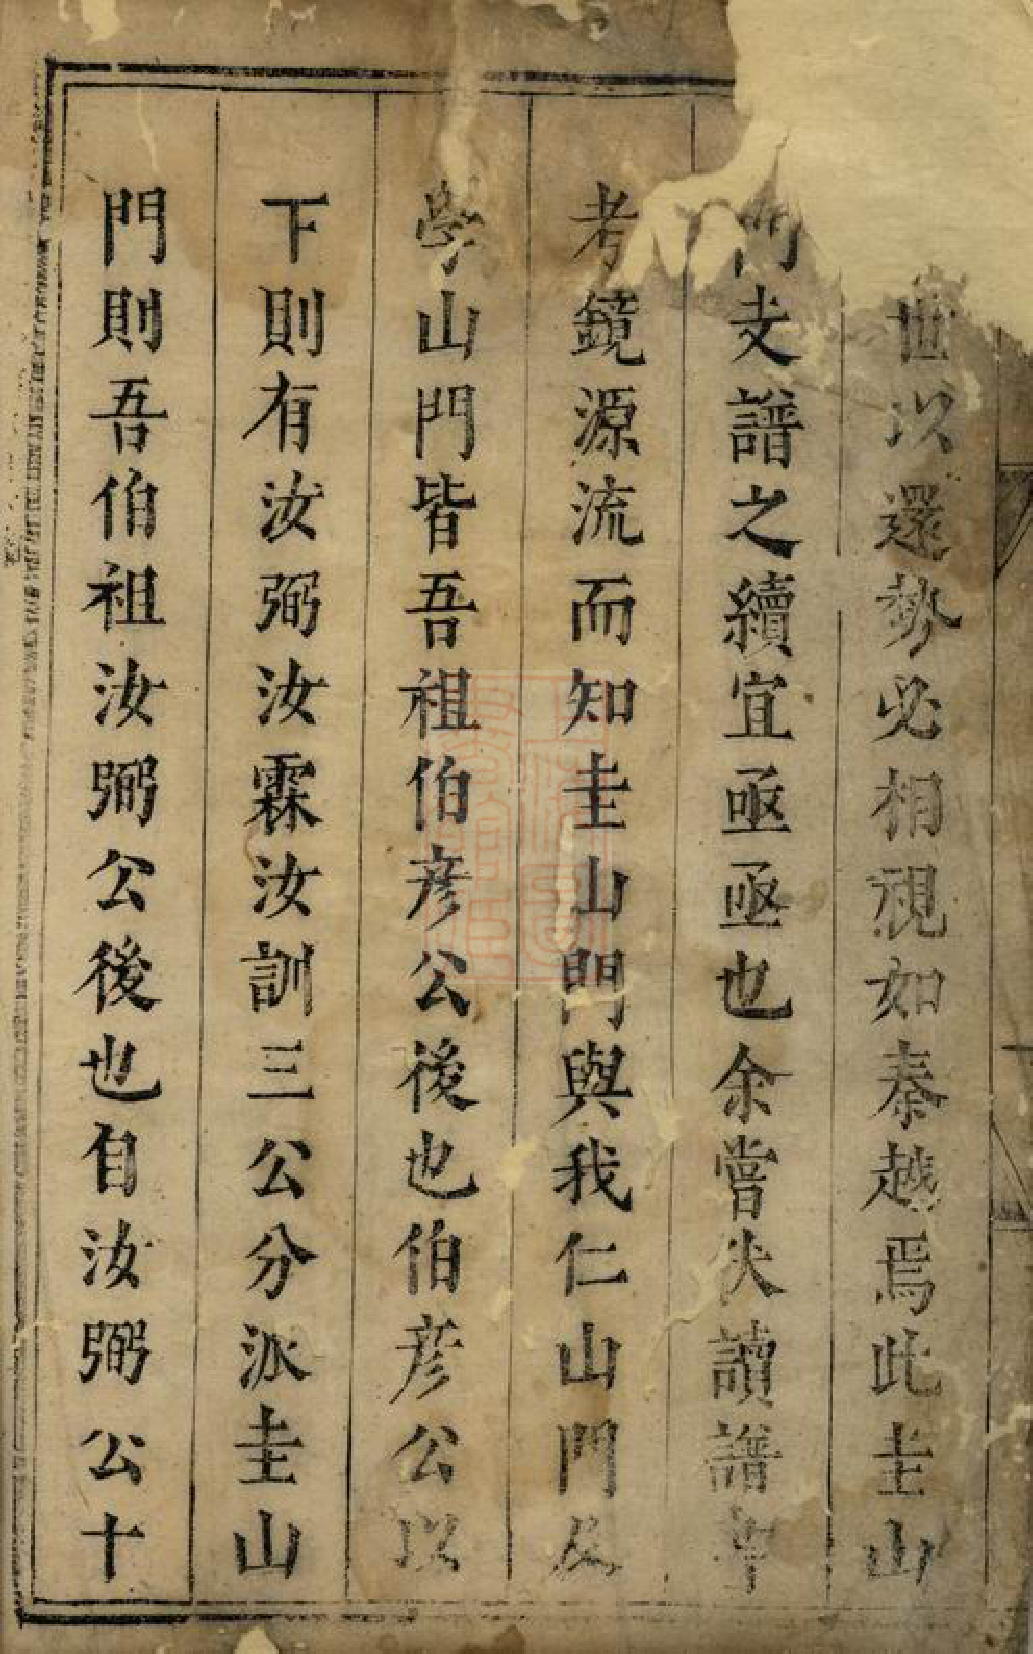 世以還勢必相視如秦越焉此圭山
門支譜之續宜亟亟也余嘗伏讀譜牒
考鏡源流而知圭山門與我仁山門及
學山門皆吾祖伯彥公後也伯彥公以
下則有汝弼汝霖汝訓三公分派圭山
門則吾伯祖汝弼公後也自汝弼公十